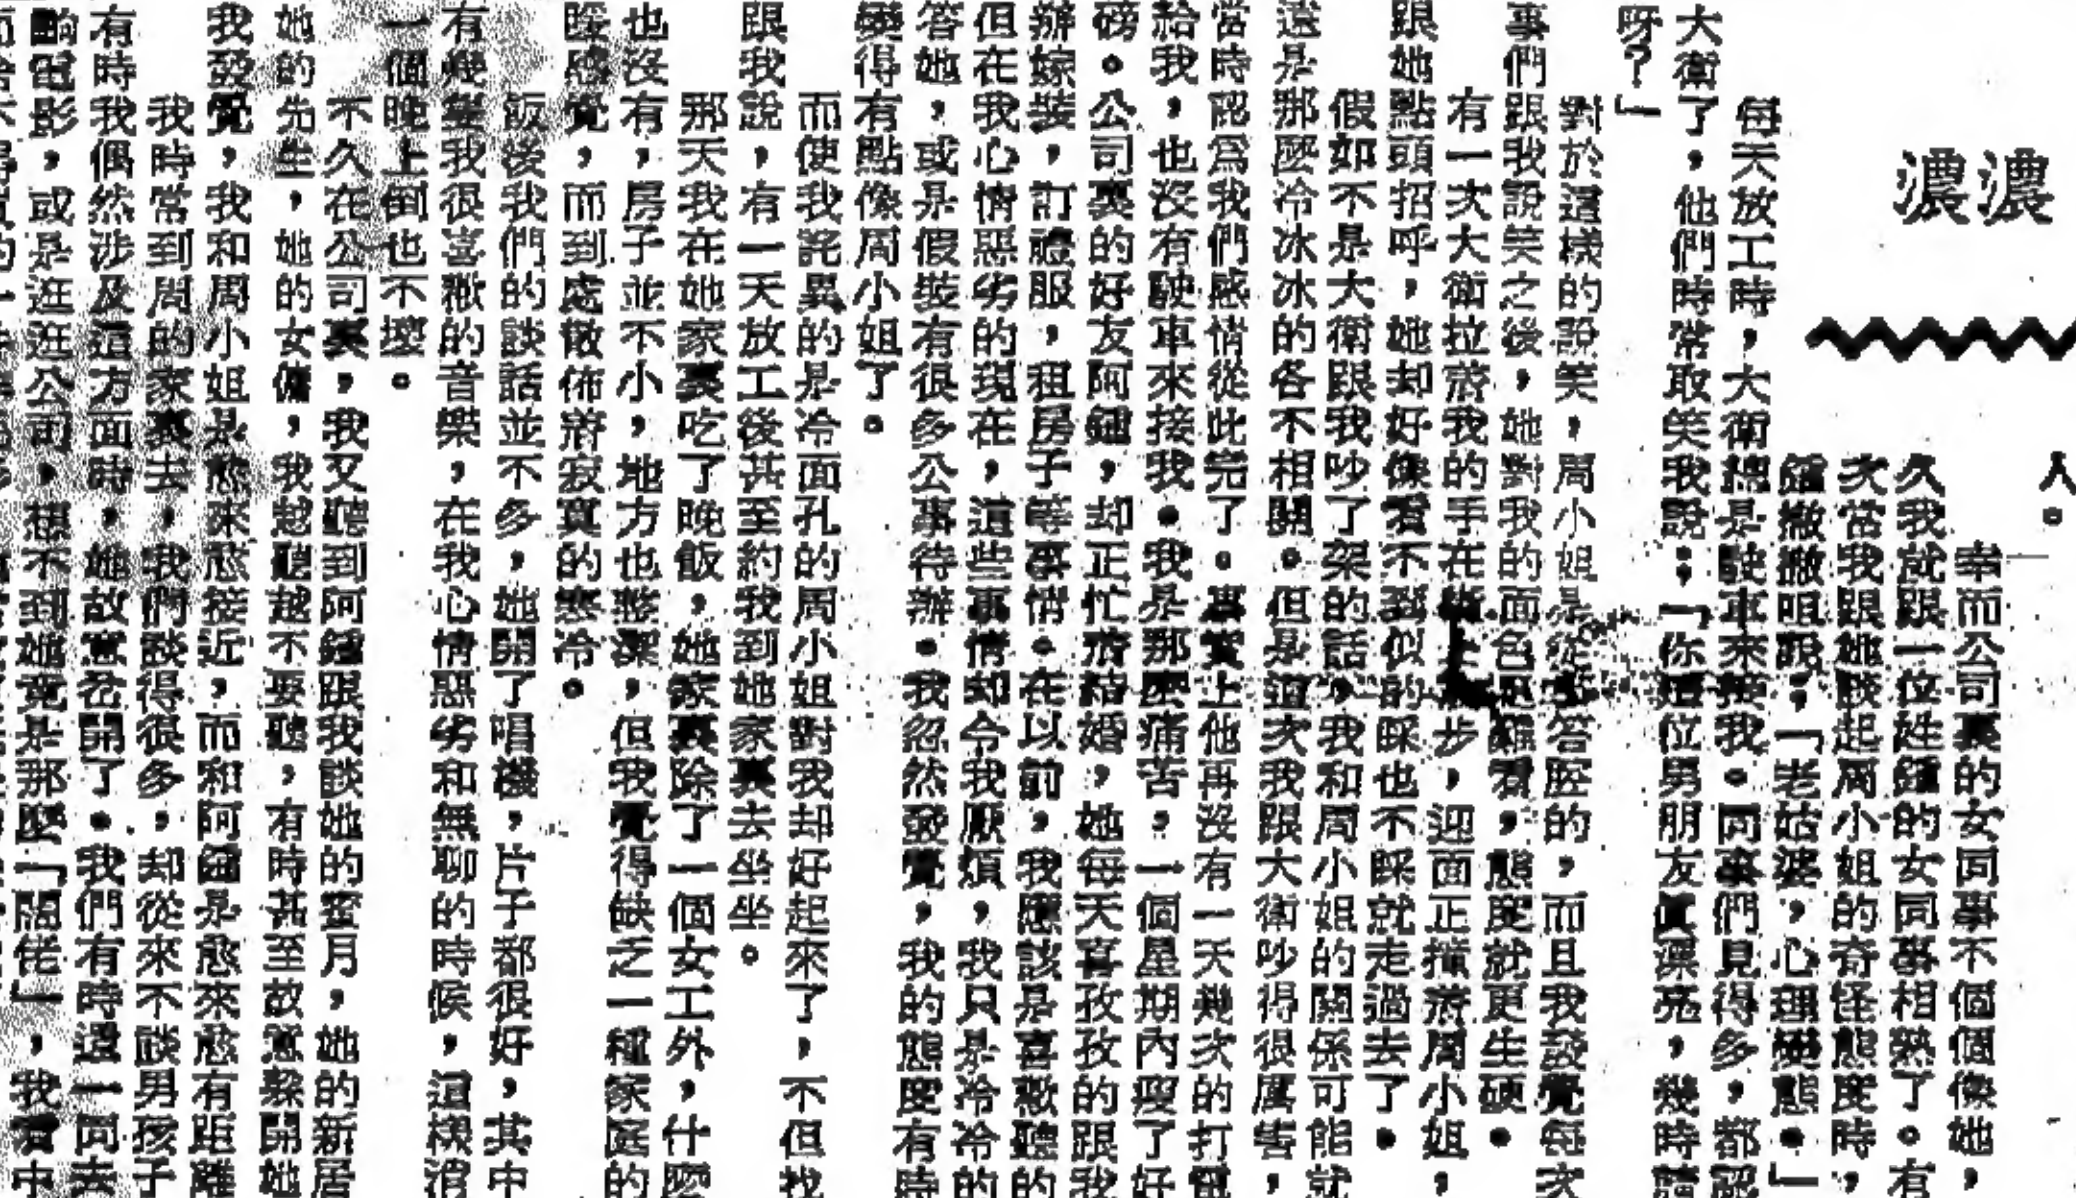 濃濃
人。
幸而公司裏的女同事不個個像她，
久我就跟一位姓鍾的女同事相熟了。有
次當我跟她談起周小姐的奇怪態度時，
鍾撇撇咀說：「老姑婆，心理變態。」
每天放工時，大衛總是駛車來接我。同事們見得多，都認
大衛了，他們時常取笑我說：「你這位男朋友眞漂亮，幾時請
呀？」
對於這樣的說笑，周小姐是從不答腔的，而且我發覺每次
事們跟我說笑之後，她對我的面色更難看，態度就更生硬。
有一次大衛拉着我的手在街上步，迎面正撞着周小姐，
跟她點頭招呼，她却好像看不到似的睬也不睬就走過去了。
假如不是大衛跟我吵了架的話，我和周小姐的關係可能就
還是那麼冷冰冰的各不相關。但是這次我跟大衛吵得很厲害，
當時認爲我們感情從此完了。事實上他再沒有一天幾次的打電
給我，也沒有駛車來接我。我是那麼痛苦，一個星期內瘦了好
磅。公司裏的好友阿鍾，却正忙着結婚，她每天喜孜孜的跟我
辦嫁裝，訂禮服，租房子等事情。在以前，我應該是喜歡聽的
但在我心情惡劣的現在，這些事情却令我厭煩，我只是冷冷的
答她，或是假裝有很多公事待辦。我忽然發覺，我的態度有時
變得有點像周小姐了。
而使我詫異的是冷面孔的周小姐對我却好起來了，不但找
跟我說，有一天放工後甚至約我到她家裏去坐坐。
那天我在她家裏吃了晚飯，她家裏除了一個女工外，什麼
也沒有，房子並不小，地方也整潔，但我覺得缺乏一種家庭的
暖感覺，而到處散佈着寂寞的寒冷。
飯後我們的談話並不多，她開了唱機，片子都很好，其中
有幾隻我很喜歡的音樂，在我心情惡劣和無聊的時候，這樣消
一個晚上倒也不壞。
不久在公司裏，我又聽到阿鍾跟我談她的蜜月，她的新居
她的先生，她的女傭，我越聽越不要聽，有時甚至故意躱開她
我發覺，我和周小姐是愈來愈接近，而和阿鍾是愈來愈有距離
我時常到周的家裏去，我們談得很多，却從來不談男孩子
有時我偶然涉及這方面時，她故意岔開了。我們有時還一同去
電影，或是逛逛公司，想不到她竟是那麼「闊佬」，我看中